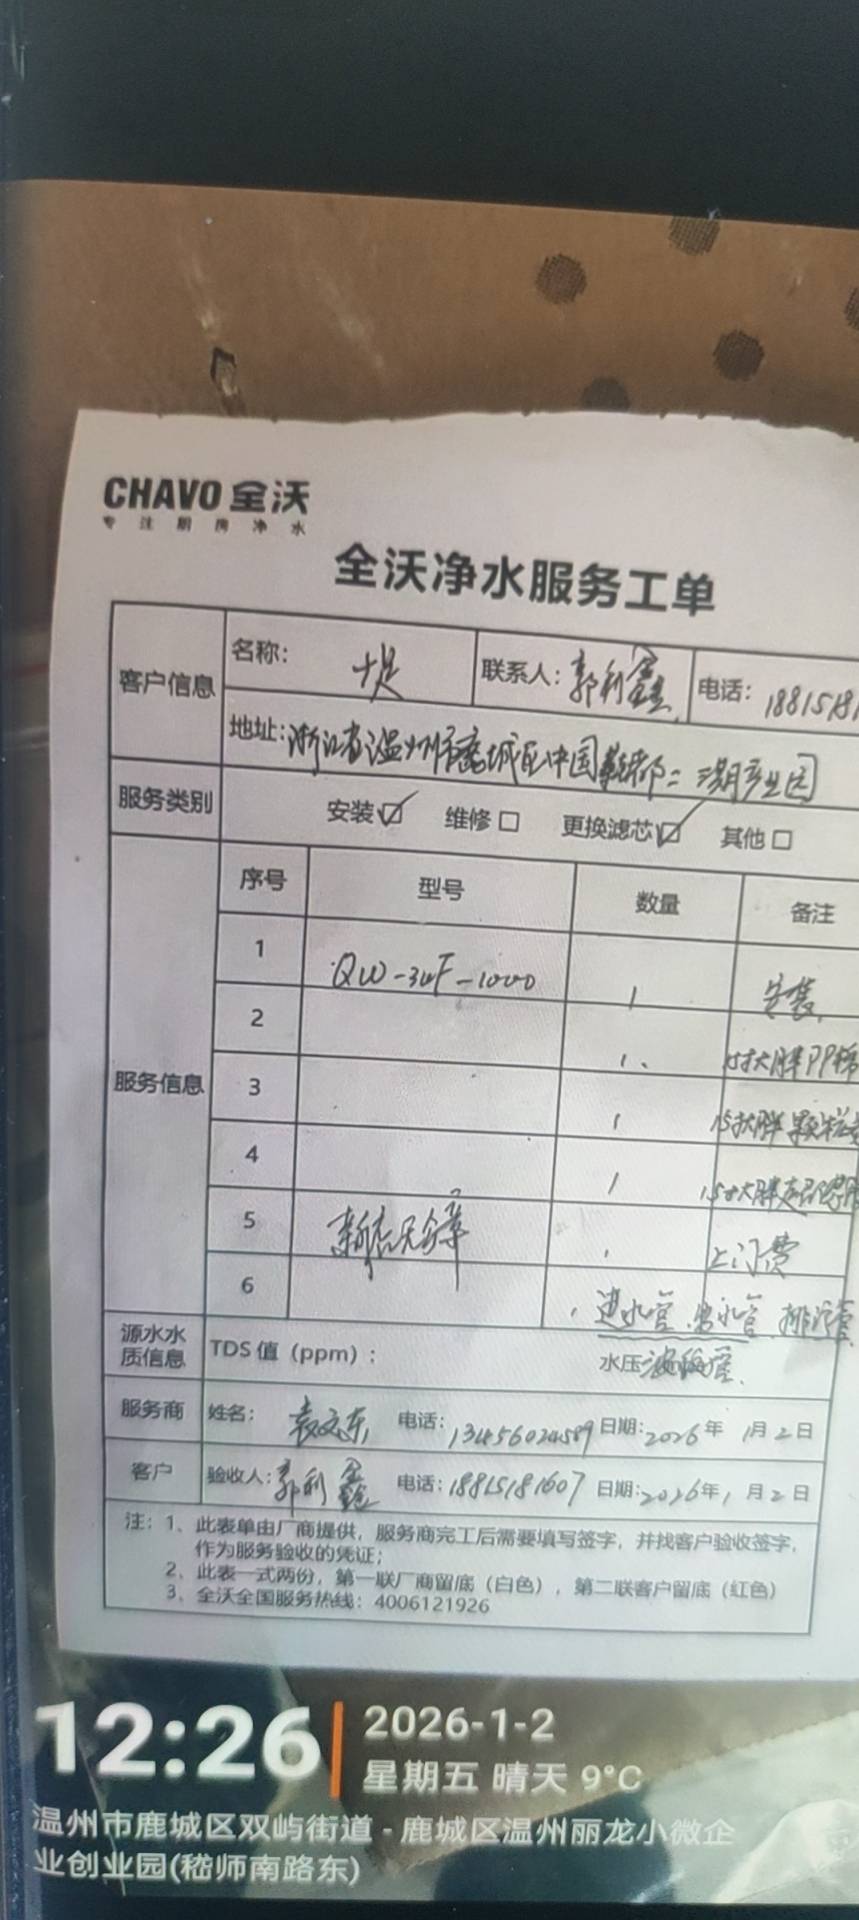 CHAVO 全沃
专注厨房净水
全沃净水服务工单
客户信息 名称: 联系人: 郭利鑫 电话: 18815181
地址: 浙江省温州市鹿城区中国鞋都二期产业园
服务类别 安装☑ 维修□ 更换滤芯☑ 其他□
服务信息 序号 型号 数量 备注
1 QW-3UF-1000 1 安装
2 1 15寸大胖PP棉
3 1 15寸大胖颗粒
4 1 15寸大胖
5 上门费
6 进水管 出水管 排污管
源水水质信息 TDS值(ppm): 水压
服务商 姓名: 袁文东 电话: 13456024589 日期: 2026年 1月2日
客户 验收人: 郭利鑫 电话: 18815181607 日期: 2026年1月2日
注: 1、此表单由厂商提供，服务商完工后需要填写签字，并找客户验收签字，
作为服务验收的凭证;
2、此表一式两份，第一联厂商留底（白色），第二联客户留底（红色）
3、全沃全国服务热线: 4006121926
12:26 2026-1-2
星期五 晴天 9°C
温州市鹿城区双屿街道-鹿城区温州丽龙小微企
业创业园(嵇师南路东)